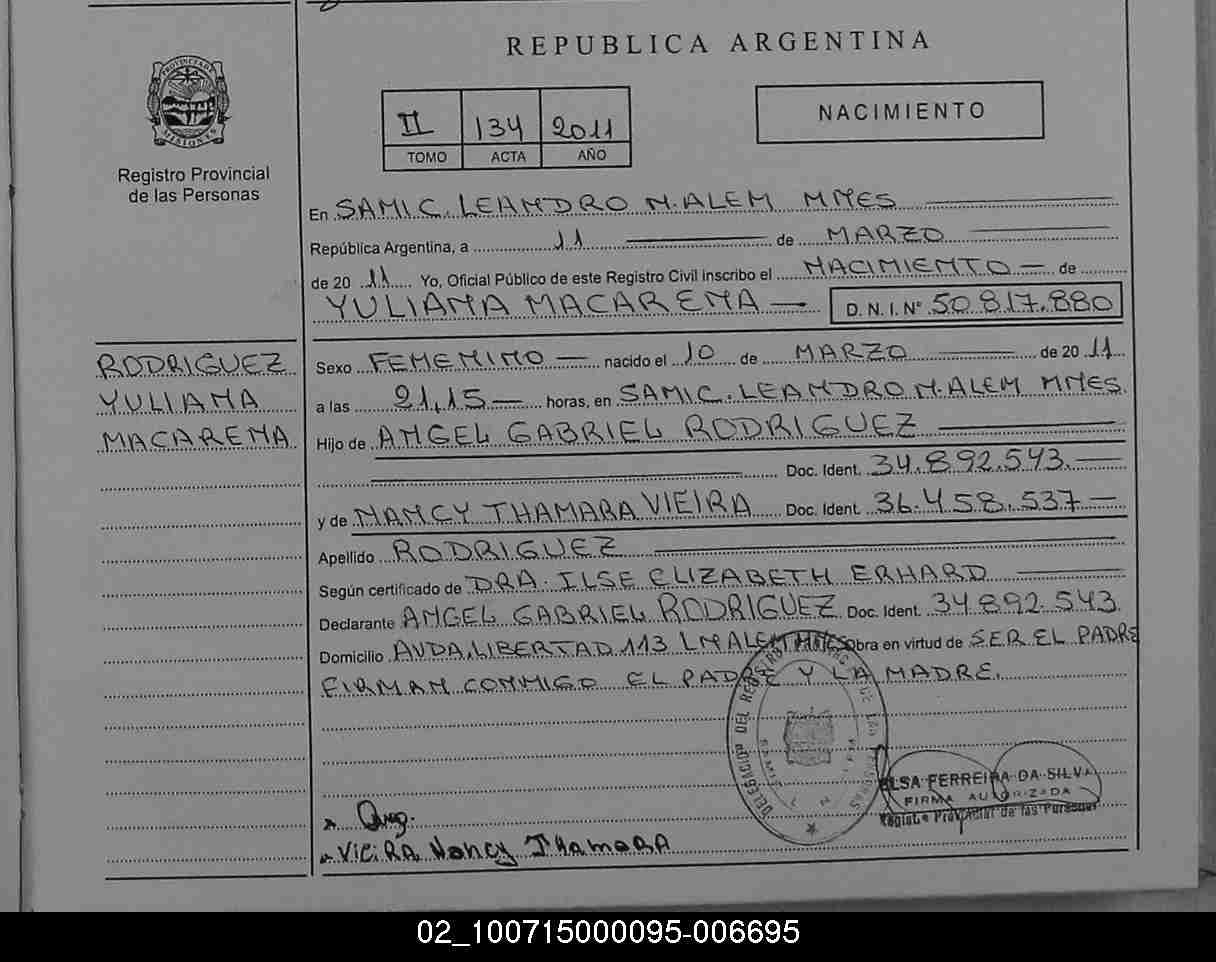 REPUBLICA ARGENTINA
PROVINCIA DE
MISIONES
Registro Provincial
de las Personas
II 134 2011
TOMO ACTA AÑO
NACIMIENTO
En SAMIC. LEANDRO N. ALEM MNES
República Argentina, a 11 de MARZO
de 2011 Yo, Oficial Público de este Registro Civil inscribo el NACIMIENTO de
YULIANA MACARENA D. N. I. N° 50.817.880
RODRIGUEZ
YULIANA
MACARENA
Sexo FEMENINO nacido el 10 de MARZO de 2011
a las 21,15 horas, en SAMIC. LEANDRO N. ALEM MNES.
Hijo de ANGEL GABRIEL RODRIGUEZ
Doc. Ident. 34.892.543.
y de NANCY THAMARA VIEIRA Doc. Ident. 36.458.537
Apellido RODRIGUEZ
Según certificado de DRA. ILSE ELIZABETH ERHARD
Declarante ANGEL GABRIEL RODRIGUEZ Doc. Ident. 34.892.543.
Domicilio AVDA. LIBERTAD 113 L N ALEM MNES Obra en virtud de SER EL PADRE
FIRMAN CONMIGO EL PADRE Y LA MADRE.
DELEGACION DEL REGISTRO DE LAS PERSONAS
ELSA FERREIRA DA SILVA
FIRMA AUTORIZADA
Registro Provincial de las Personas
VIEIRA Nancy THAMARA
02_100715000095-006695